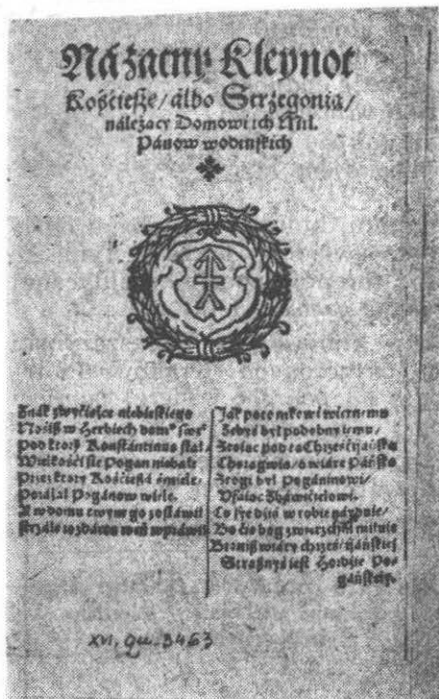 Ná Zacny Kleynot
Kośćieszę / álbo Strzegonia /
należący Domowi ich Mil.
Pánow wodinskich
Znák zwyćięzce niebieskiego
Nośisz w Herbiech dom° swe°
Pod ktorą Konstántinus stał
Wielkośći się Pogan niebał
Przez ktory Kośćieszá śmiele,
Poráźał Pogánow wiele.
A w domu twym go zostáwił
Strzałę rozdártą weń wpráwił
Ják potomkowi wiernemu
Zebyś był podobny iemu /
Stoiąc pod tą Chrześćijáńską
Chorągwią / o wiárę Páńską
Srogi był Pogáninowi /
Vfáiąc Zbáwićielowi.
Co się dziś w tobie náyduie /
Bo ćię bog zwierzchni miłuie
Bronisz wiáry chrześćijáńskiey
Strászny iest Hordzie Po-
gáńskiey.
XVI. Qu. 3463